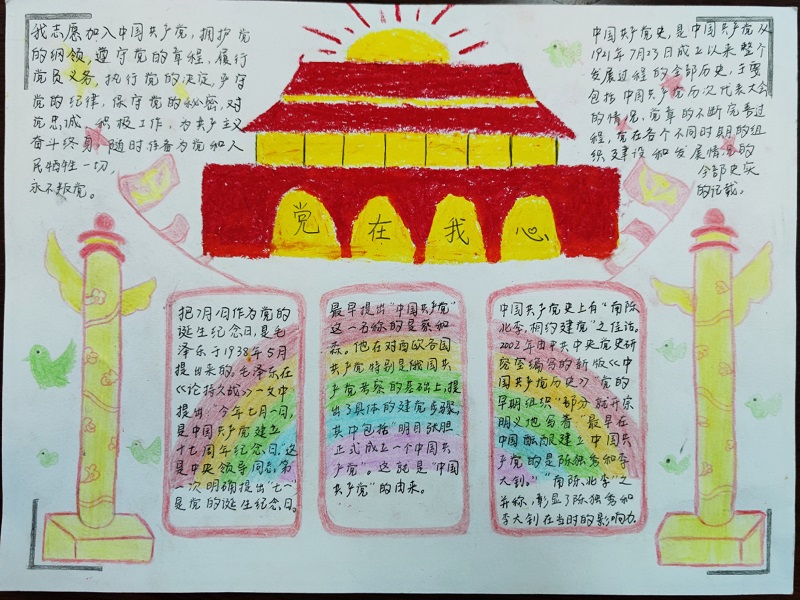 我志愿加入中国共产党，拥护党
的纲领，遵守党的章程，履行
党员义务，执行党的决定，严守
党的纪律，保守党的秘密，对
党忠诚，积极工作，为共产主义
奋斗终身，随时准备为党和人
民牺牲一切，
永不叛党。
中国共产党史，是中国共产党从
1921年7月23日成立以来整个
发展过程的全部历史，主要
包括中国共产党历次代表大会
的情况，党章的不断完善过
程，党在各个不同时期的组
织建设和发展情况的
全部史实
的记载。
党在我心
把7月1日作为党的
诞生纪念日，是毛
泽东于1938年5月
提出来的，毛泽东在
《论持久战》一文中
提出"今年七月一日，
是中国共产党建立
十七周年纪念日"这
是中央领导同志第
一次明确提出"七一"
是党的诞生纪念日。
最早提出"中国共产党"
这一名称的是蔡和
森。他在对西欧各国
共产党特别是俄国共
产党考察的基础上，提
出了具体的建党步骤，
其中包括"明目张胆
正式成立一个中国共
产党"。这就是"中国
共产党"的由来。
中国共产党史上有"南陈
北李，相约建党"之佳话。
2002年由中共中央党史研
究室编写的新版《中
国共产党历史》"党的
早期组织"部分就开宗
明义地写着"最早在
中国酝酿建立中国共
产党的是陈独秀和李
大钊。""南陈北李"之
并称，彰显了陈独秀和
李大钊在当时的影响力.